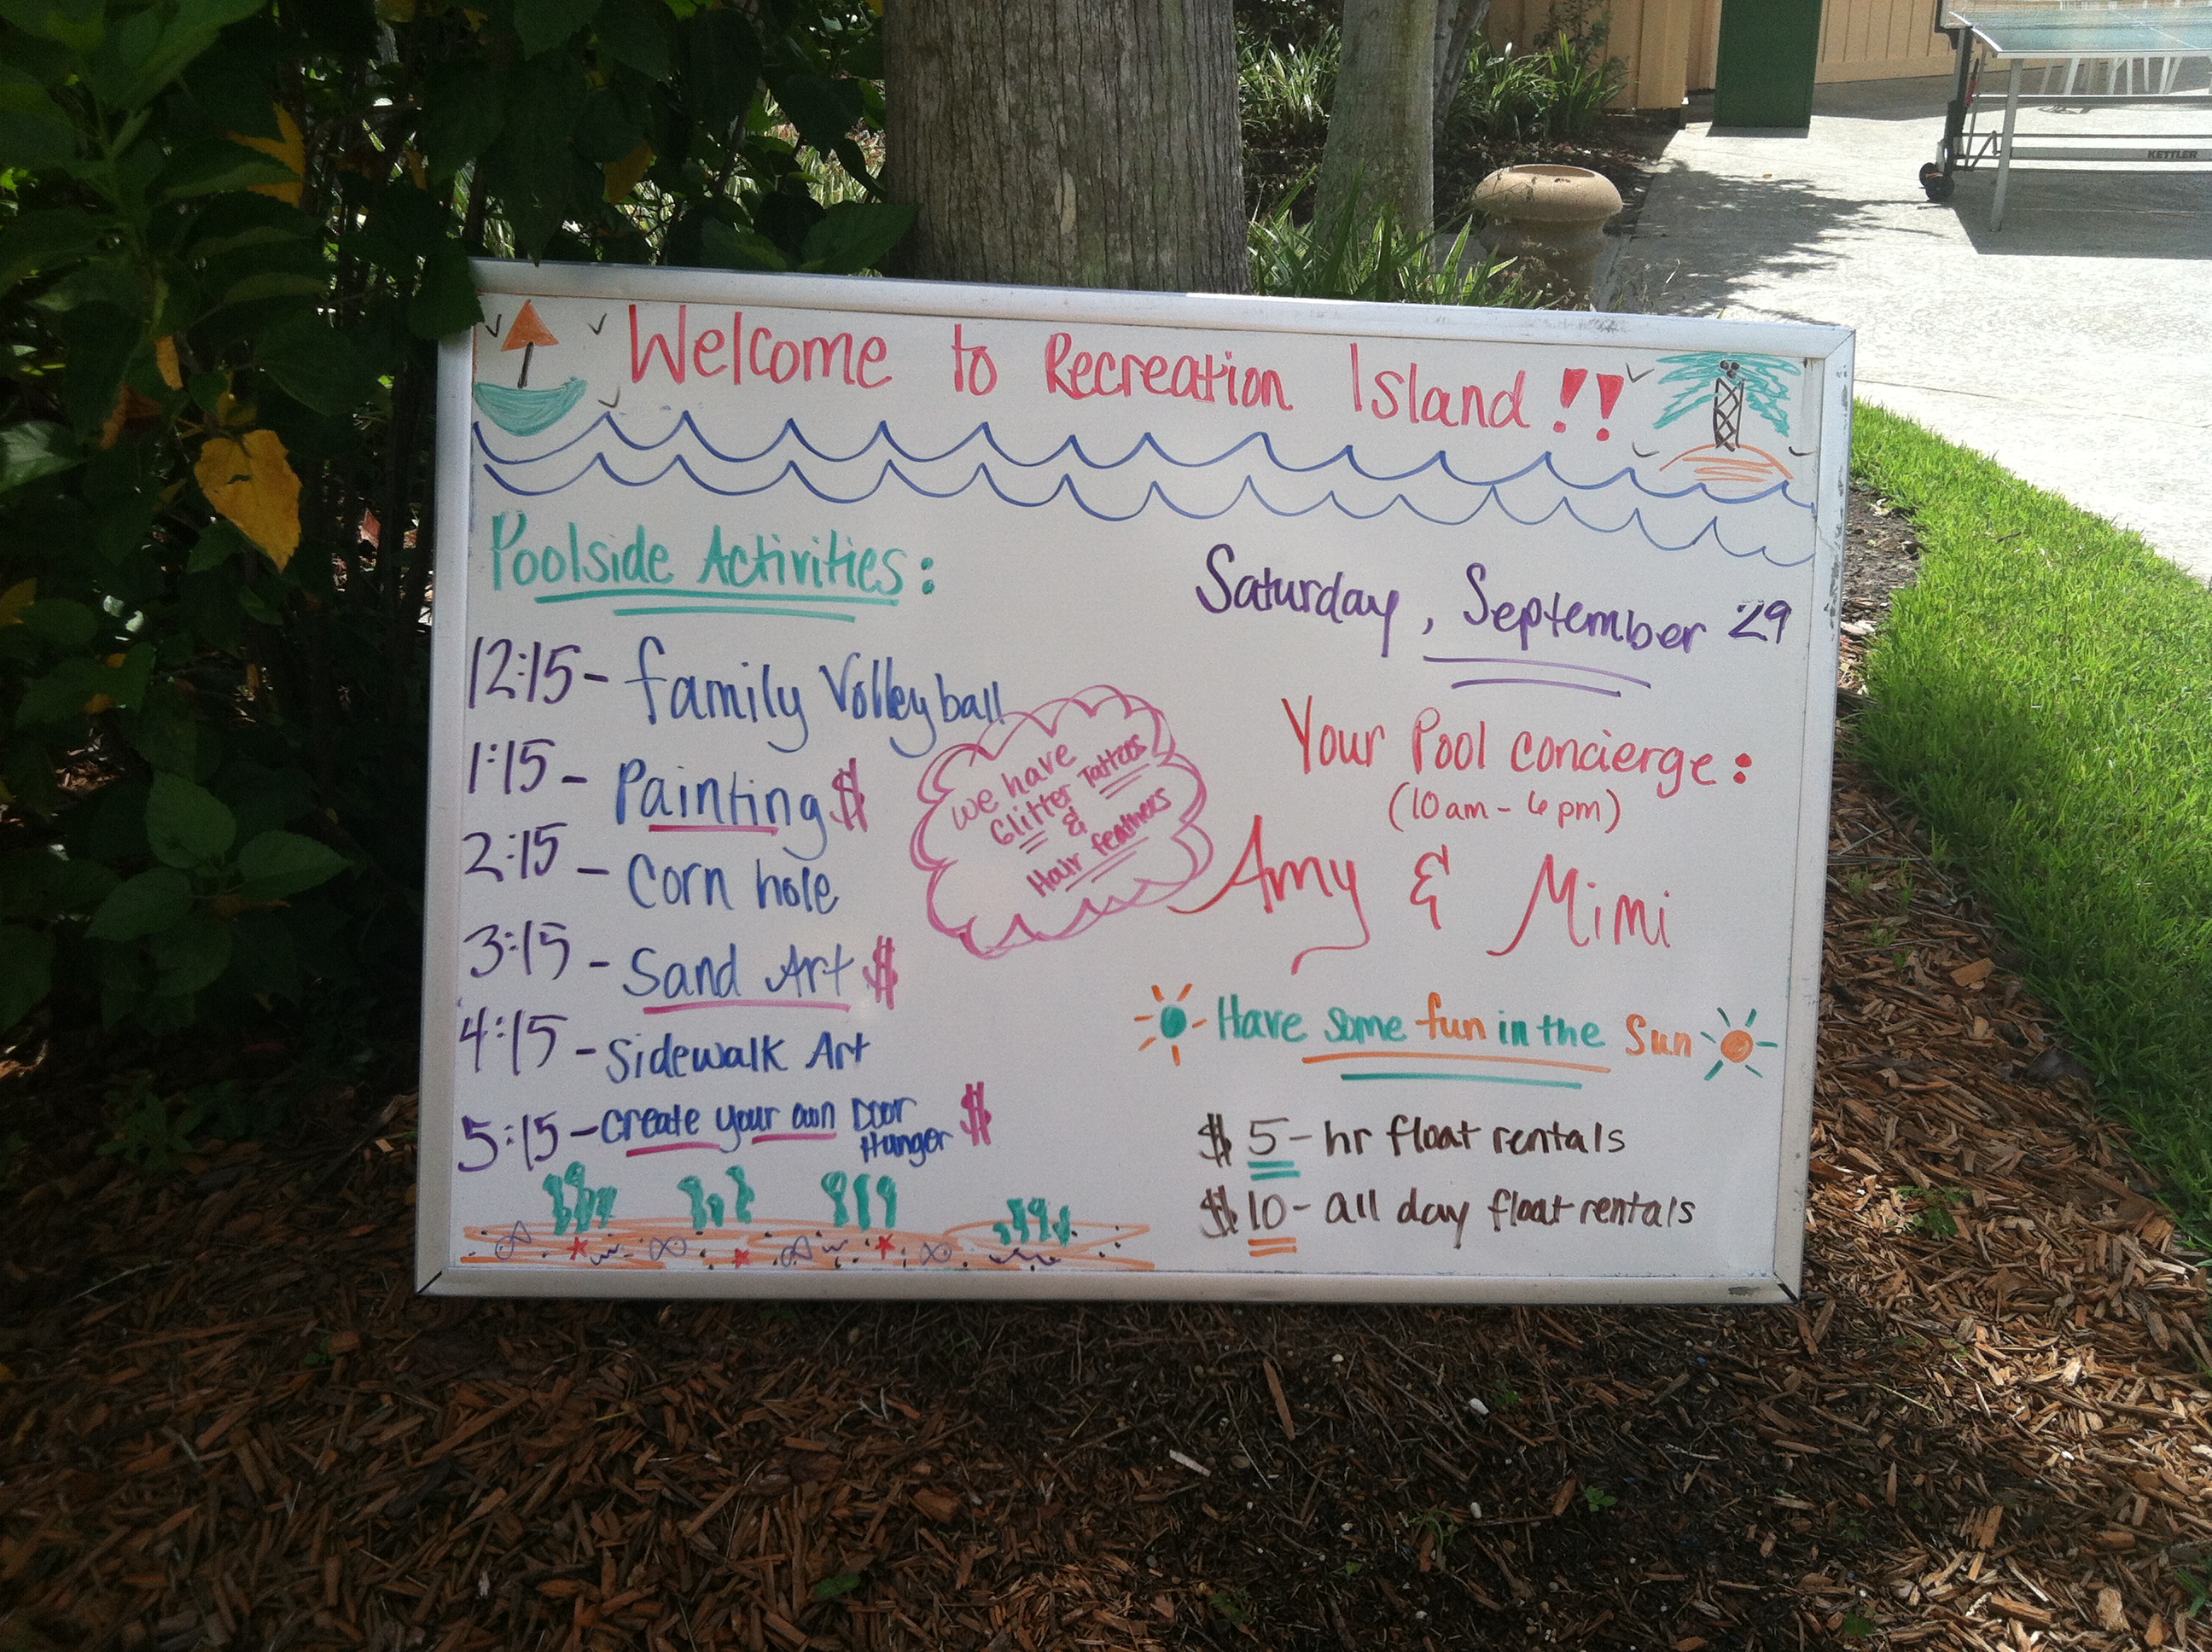 KETTLER
Welcome to Recreation Island!!
Poolside Activities:
12:15 - family Volleyball
1:15 - Painting $
2:15 - Corn hole
3:15 - Sand Art $
4:15 - Sidewalk Art
5:15 - Create your own Door
Hanger $
We have
Glitter Tattoos
&
Hair feathers
Saturday, September 29
Your Pool concierge:
(10am - 6pm)
Amy & Mimi
Have some fun in the Sun
$5 - hr float rentals
$10 - all day float rentals